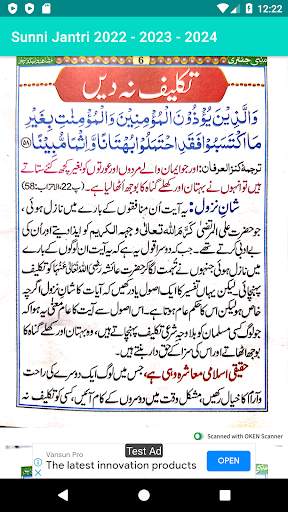 12:22
Sunni Jantri 2022 - 2023 - 2024
6
تکلیف نہ دیں
وَالَّذِیْنَ یُؤْذُوْنَ الْمُؤْمِنِیْنَ وَالْمُؤْمِنٰتِ بِغَیْرِ
مَا اکْتَسَبُوْا فَقَدِ احْتَمَلُوْا بُهْتَانًا وَّ اِثْمًا مُّبِیْنًا ﴿۵۸﴾
ترجمۂ کنزالعرفان: اور جو ایمان والے مردوں اور عورتوں کو بغیر کچھ کئے ستاتے
ہیں تو انہوں نے بہتان اور کھلے گناہ کا بوجھ اٹھا لیا ہے۔ (پ22، الاحزاب:58)
شانِ نزول: یہ آیت اُن منافقوں کے بارے میں نازل ہوئی،
جو حضرت علی المرتضیٰ کَرَّمَ اللہ تعالیٰ وجہہ الکریم کو ایذا دیتے اور ان کی
بے ادبی کرتے تھے۔ جبکہ دوسرا قول یہ ہے کہ یہ آیت ان لوگوں کے بارے
میں نازل ہوئی جنہوں نے حضرت عائشہ رضی اللہ تعالیٰ عنہا کو تکلیف
پہنچائی۔ لیکن یہاں تفسیر کا ایک اصول یاد رکھیں کہ آیات کا شانِ نزول اگرچہ
خاص ہو لیکن اس کا حکم عام ہوتا ہے۔ اس اصول سے آیت کا عام معنی یہ ہوا کہ
جو لوگ کسی مسلمان کو بلاوجہ شرعی تکلیف پہنچاتے ہیں، وہ بہتان اور کھلے گناہ کا
بوجھ اٹھاتے اور اس کی سزا کے حق دار ٹھہرتے ہیں۔
حقیقی اسلامی معاشرہ وہی ہے، جس میں لوگ ایک دوسرے کی راحت
و آرام کا خیال رکھیں، مشکل وقت میں دوسرے کے کام آئیں، کسی کو تکلیف نہ
Scanned with OKEN Scanner
Test Ad
Vansun Pro
The latest innovation products
OPEN